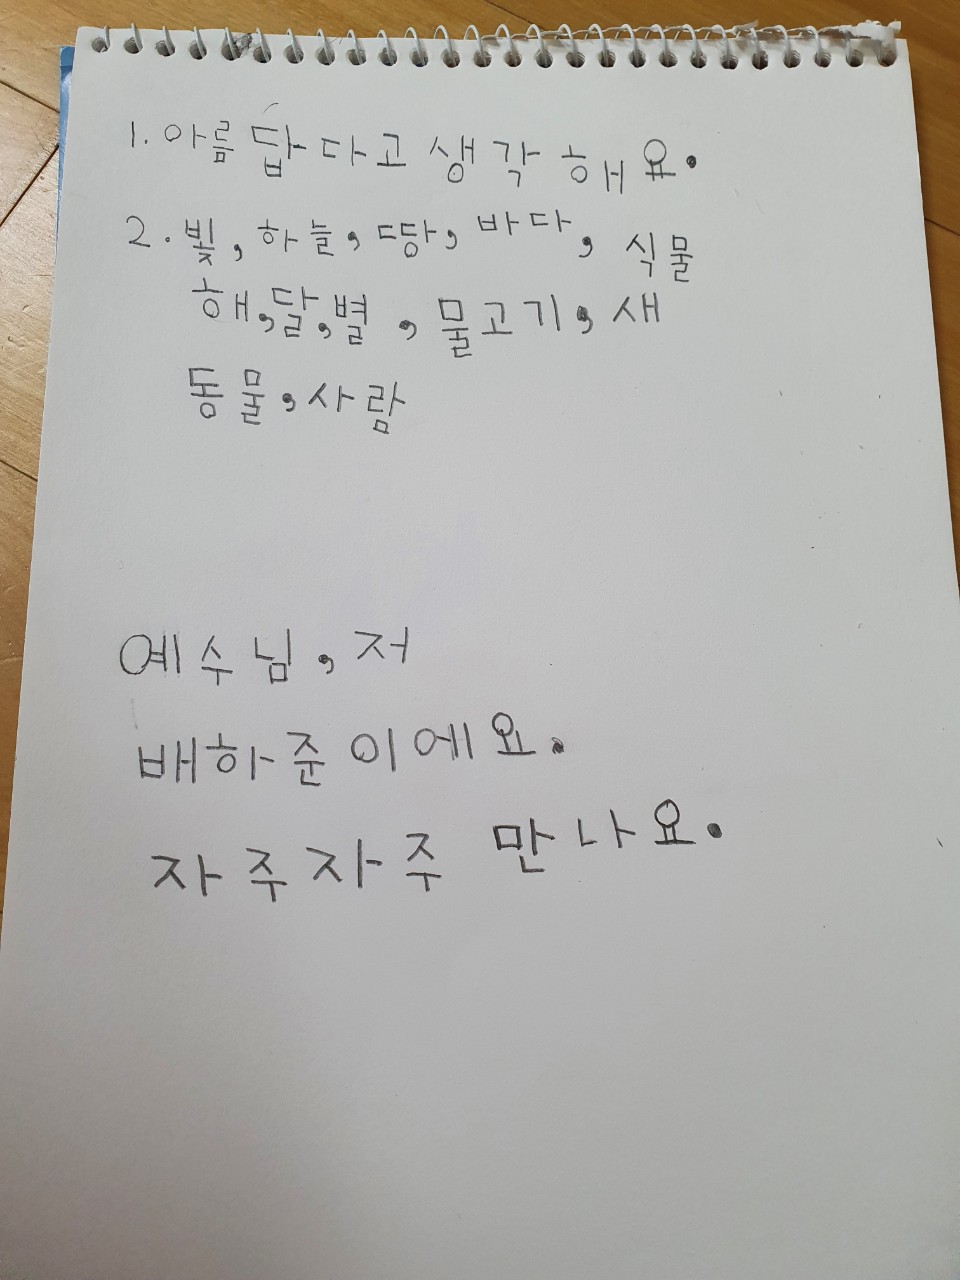 1. 아름답다고 생각해요.
2. 빛, 하늘, 땅, 바다, 식물
해, 달, 별, 물고기, 새
동물, 사람
예수님, 저
배하준이에요.
자주자주 만나요.